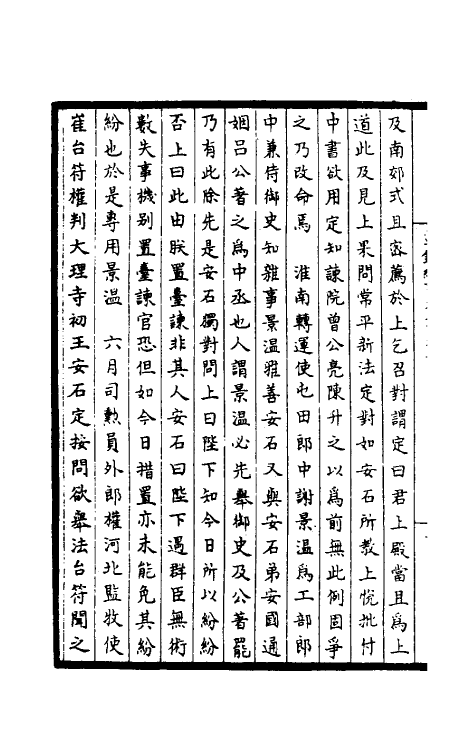 及南郊式且密薦於上乞召對謂定曰君上殿當且爲上
道此及見上果問常平新法定對如安石所教上悅批付
中書欲用定知諫院曾公亮陳升之以爲前無此例固爭
之乃改命焉　淮南轉運使屯田郎中謝景溫爲工部郎
中兼侍御史知雜事景溫雅善安石又與安石弟安國通
姻呂公著之爲中丞也人謂景溫必先舉御史及公著罷
乃有此除先是安石獨對問上曰陛下知今日所以紛紛
否上曰此由朕置臺諫非其人安石曰陛下遇群臣無術
數失事機别置臺諫官恐但如今日措置亦未能免其紛
紛也於是專用景溫　六月司勲員外郎權河北監牧使
崔台符權判大理寺初王安石定按問欲舉法台符聞之